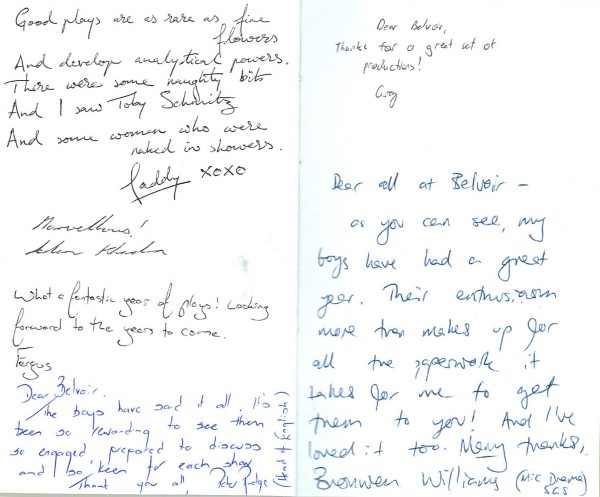 Good plays are as rare as fine
flowers
And develop analytical powers.
There were some naughty bits
And I saw Toby Schmitz
And some women who were
naked in showers.
Paddy xoxo
Marvellous!
What a fantastic year of plays! Looking
forward to the years to come.
Fergus
Dear Belvoir.
The boys have said it all. It's
been so rewarding to see them
so engaged, prepared to discuss
and so keen for each show
Thank you all, Peter
(Head of English)
Dear Belvoir,
Thanks for a great set of
productions!
Dear all at Belvoir –
as you can see, my
boys have had a great
year. Their enthusiasm
more than makes up for
all the paperwork it
takes for me to get
them to you! And I've
loved it too. Many thanks,
Bronwen Williams (MIC Drama
SGS)